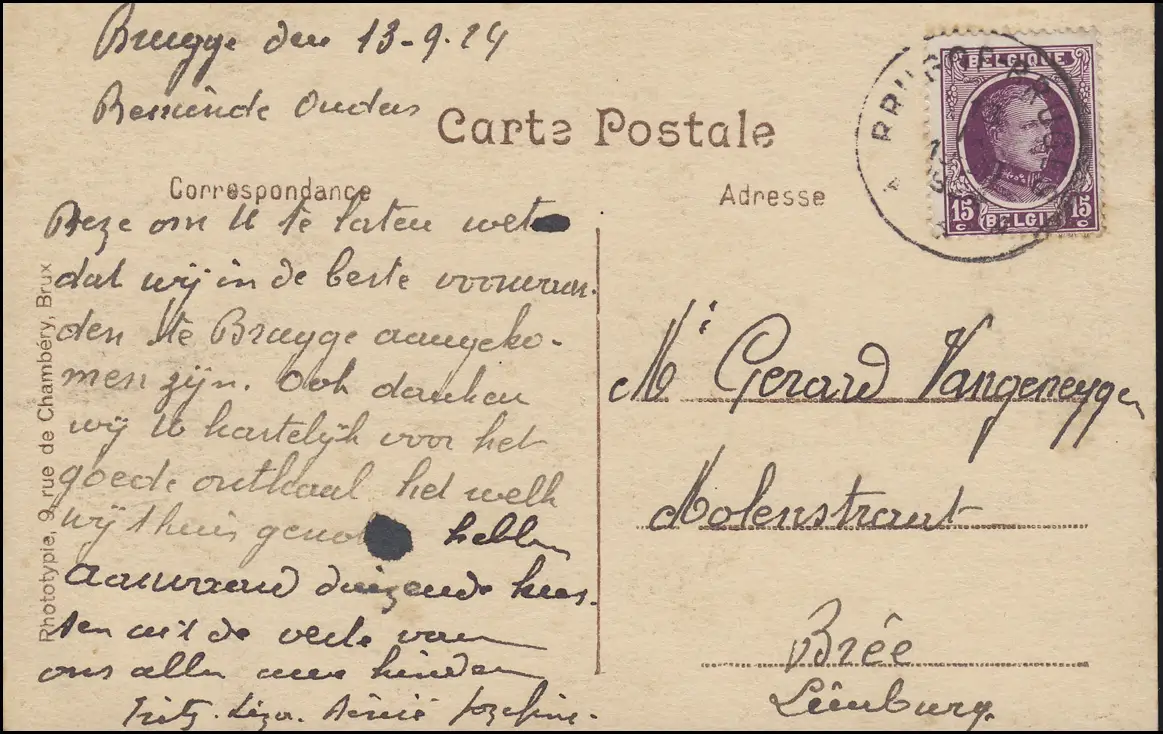 Brugge den 13-9-24
Beminde Ouders
Carte Postale
Correspondance
Adresse
BELGIQUE
15 BELGIE 15
c c
Deze om U te laten weten
dat wij in de beste voorwaar-
den te Brugge aangeko-
men zijn. Ook danken
wij U hartelijk voor het
goede onthaal het welk
wij thuis genoten hebben
Aanvaard duizende kus-
sen uit de verte van
ons allen uwe kinderen
Fritz. Liza. Josefine.
Mr Gerard Vangeneygen
Molenstraat
Brée
Limburg.
Phototypie, 9, rue de Chambéry, Brux